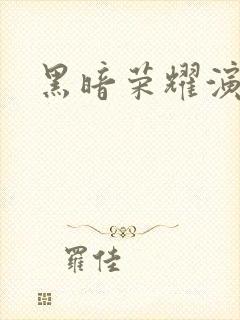 黑暗荣耀演
羅佳